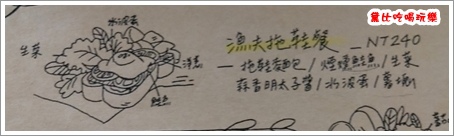 黛比吃喝玩樂
水波蛋
生菜
漁夫拖鞋餐 — NT240
洋蔥
— 拖鞋麵包/煙燻鮭魚/生菜
蒜香明太子醬/水波蛋/薯塊
鮭魚